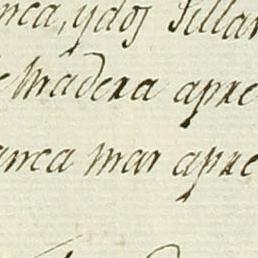 nca, y dos Sillar
e Madera apre
anca mar apre